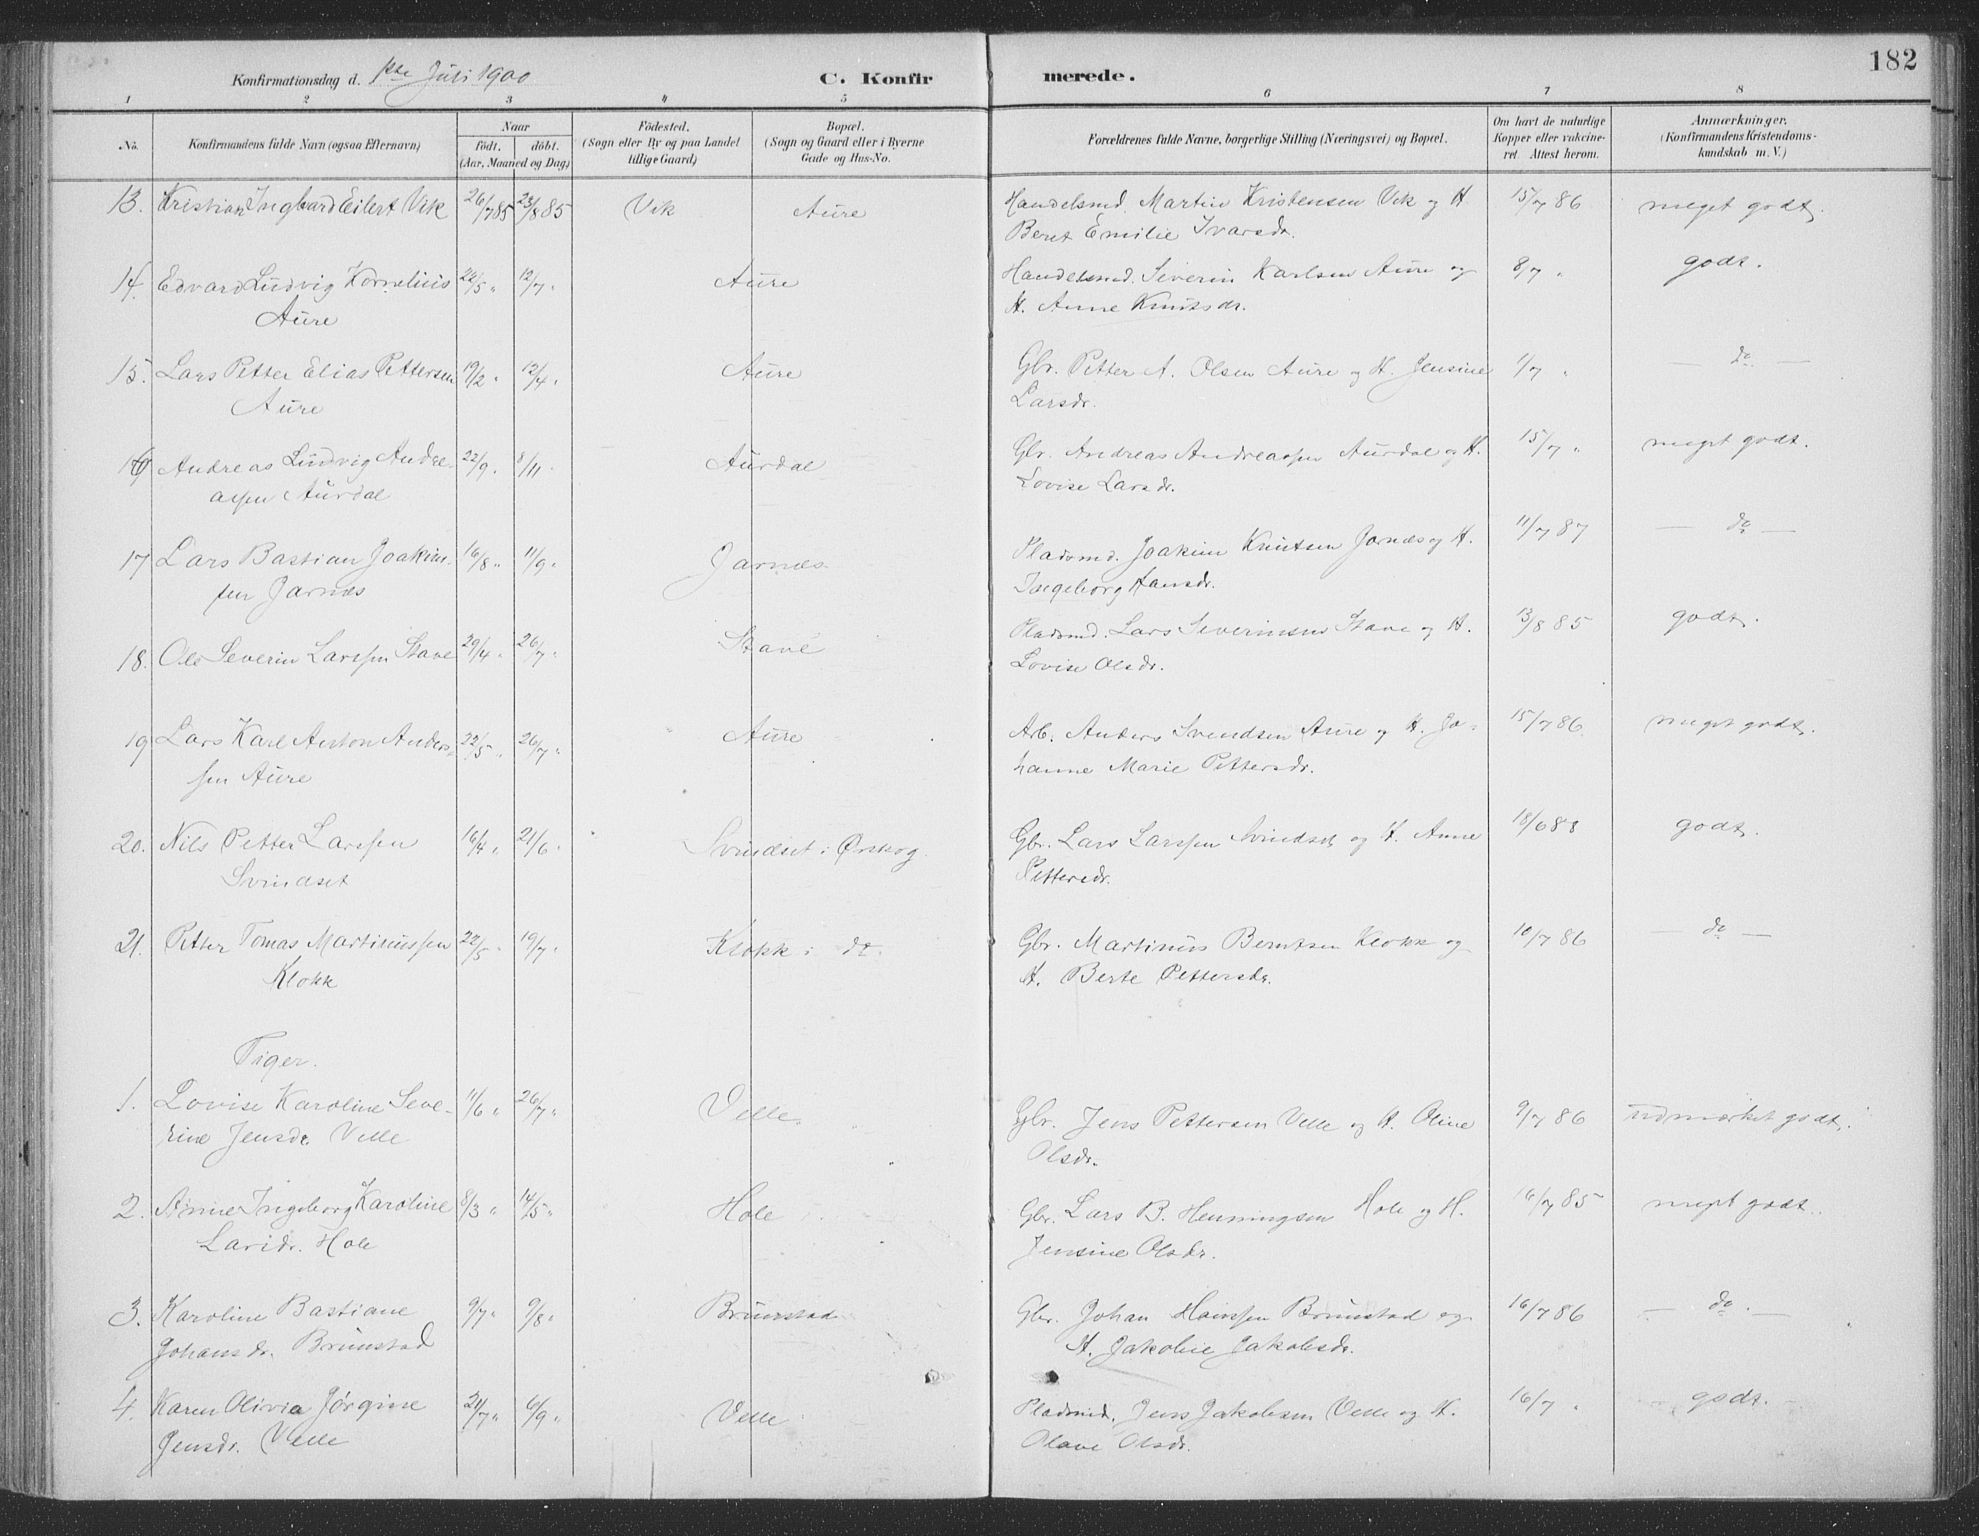 182
Konfirmationsdag d. 1ste Juli 1900 C. Konfirmerede.
1 2 3 4 5 6 7 8
No. Konfirmandens fulde Navn (ogsaa Efternavn) Naar födt. döbt. (Aar, Maaned og Dag) Födested. (Sogn eller By og paa Landet tillige Gaard) Bopæl. (Sogn og Gaard eller i Byerne Gade og Hus-No. Forældrenes fulde Navne, borgerlige Stilling (Næringsvei) og Bopæl. Om havt de naturlige Kopper eller vakcineret. Attest herom. Anmærkninger. (Konfirmandens Kristendomskundskab m. V.)
13. Kristian Ingvard Eilert Vik 26/7 85 23/8 85 Vik Aure Handelsmd. Martin Kristensen Vik og H. 15/7 86 meget godt.
Beret Emilie Ivarsdr.
14. Edvard Ludvig Kornelius 22/5 " 12/7 " Aure Handelsmd. Severin Karlsen Aure og 8/7 " godt.
Aure H. Anne Knutsdr.
15. Lars Petter Elias Pettersen 19/2 " 12/4 " Aure Gbr. Petter A. Olsen Aure og H. Jensine 1/7 " — do —
Aure Larsdr.
16 Andreas Ludvig Andre- 22/9 " 8/11 " Aurdal Gbr. Andreas Andreassen Aurdal og H. 15/7 " meget godt.
assen Aurdal Lovise Larsdr.
17 Lars Bastian Joakim- 16/8 " 11/9 " Jarnes Pladsmd. Joakim Knutsen Jarnæs og H. 11/7 87 — do —
sen Jarnes Ingeborg Hansdr.
18. Ole Severin Larssen Stave 20/4 " 26/7 " Stave Pladsmd. Lars Severinsen Stave og H. 13/8 85 godt.
Lovise Olsdr.
19 Lars Karl Anton Anders- 22/5 " 26/7 " Aure Arb. Anders Svendsen Aure og H. Jo- 15/7 86 meget godt.
sen Aure hanne Marie Pettersdr.
20. Nils Petter Larssen 16/4 " 21/6 " Svindset i Ørskog. Gbr. Lars Larssen Svindset og H. Anne 18/6 88 godt.
Svindset Pettersdr.
21. Petter Tomas Martinussen 22/5 " 19/7 " Klokk i do. Gbr. Martinus Berntsen Klokk og 10/7 86 — do —
Klokk H. Berte Pettersdr.
Piger.
1. Lovise Karoline Seve- 11/6 " 26/7 " Velle. Gbr. Jens Pettersen Velle og H. Oline 9/7 86 udmærket godt.
rine Jensdr. Velle Olsdr.
2. Anne Ingeborg Karoline 8/3 " 14/5 " Hole Gbr. Lars B. Henningsen Hole og H. 16/7 85 meget godt.
Larsdr. Hole Jensine Olsdr.
3. Karoline Bastiane 9/7 " 9/8 " Brunstad Gbr. Johan Hanssen Brunstad og 16/7 86 — do. —
Johansdr. Brunstad H. Jakobie Jakobsdr.
4. Karen Olivia Jørgine 21/7 " 6/9 " Velle Pladsmd. Jens Jakobsen Velle og H. 16/7 " godt.
Jensdr. Velle Olave Olsdr.